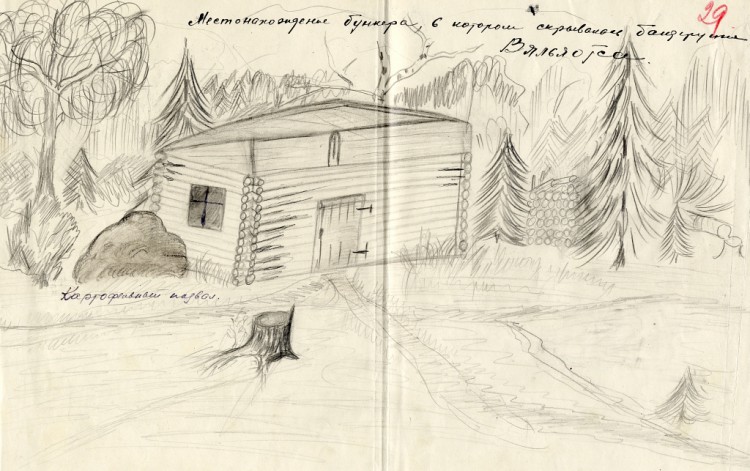 29
Местонахождение бункера, в котором скрывалась бандгруппа
Вяльяотса.
Картофельный